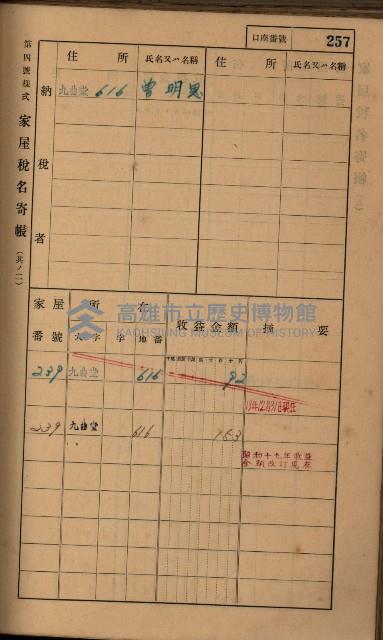 口座番號 257
第四號樣式 家屋稅名寄帳(其ノ一)
納稅者
住所 氏名又ハ名稱 住所 氏名又ハ名稱
九曲堂 616 曾明恩
高雄市立歷史博物館
KAOHSIUNG MUSEUM OF HISTORY
家屋番號 所在 收益金額 摘要
大字 字 地番
239 九曲堂 616 92
239 九曲堂 616 153
昭和十九年收益
金額改訂